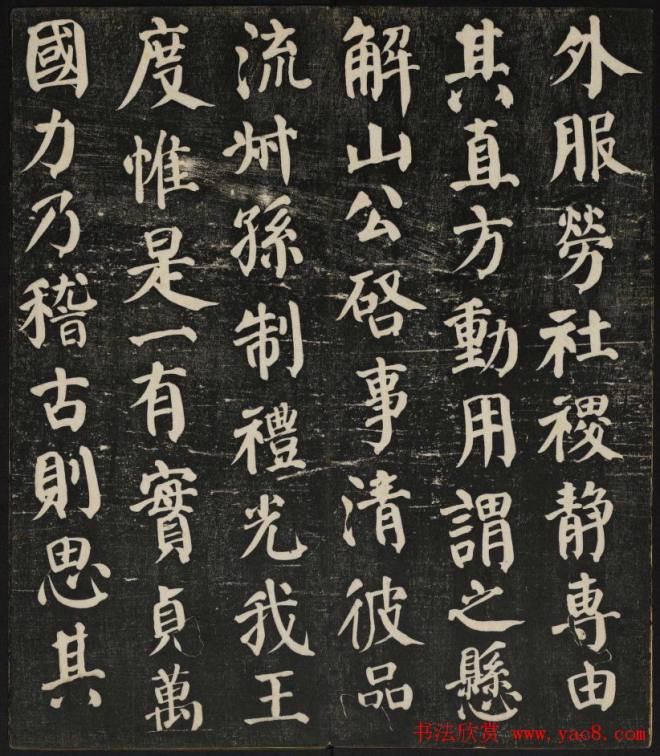 外服勞社稷静專由
其直方動用謂之懸
解山公啓事清彼品
流叔孫制禮光我王
度惟是一有實貞萬
國力乃稽古則思其
书法欣赏 www.yac8.com